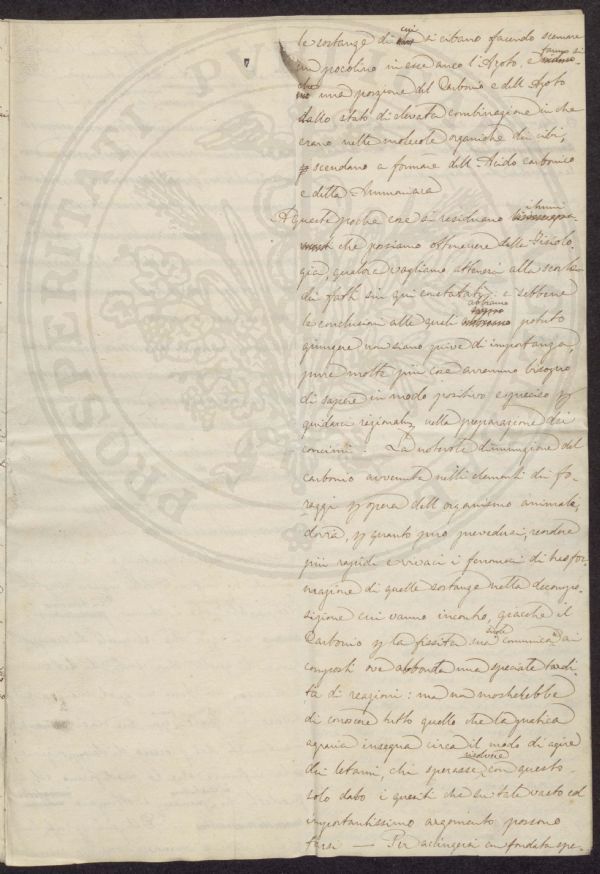 le sostanze di cui si cibano facendo scemare
un pocolino in esse anco l'Azoto, e fanno sì
che una porzione del Carbonio e dell'Azoto
dallo stato di elevata combinazione in che
erano nelle molecole organiche dei cibi,
scendano a formare dell'Acido carbonico
e della Ammoniaca
A queste poche cose si residuano i lumi
che possiamo ottenere dalla Fisiolo-
gia, qualora vogliamo attenerci alla
di fatti sin qui constatati; e sebbene
le conclusioni alle quali abbiamo potuto
giungere non siano prive di importanza,
pure molte più cose avremmo bisogno
di sapere in modo positivo e preciso p
guidarci nella preparazione dei
concimi. La notevole diminuzione del
carbonio avvenuta nelli elementi dei fo-
raggi p opera dell'organismo animale,
dovrà, p quanto può prevedersi, rendere
più rapidi e vivaci i fenomeni di trasfor-
mazione di quelle sostanze nella decompo-
sizione cui vanno incontro, giacchè il
Carbonio p la fissità sua suole comunicare ai
composti ove abbonda una speciale tardi-
tà di reazioni: ma
di conoscere tutto quello che la pratica
agraria insegna circa il modo di agire
dei letami, chi sperasse risolvere con questo
solo dato i quesiti che su tale vasto ed
importantissimo argomento possono
farsi — Per accingersi con fondata spe-
PROSPERITATI PVB